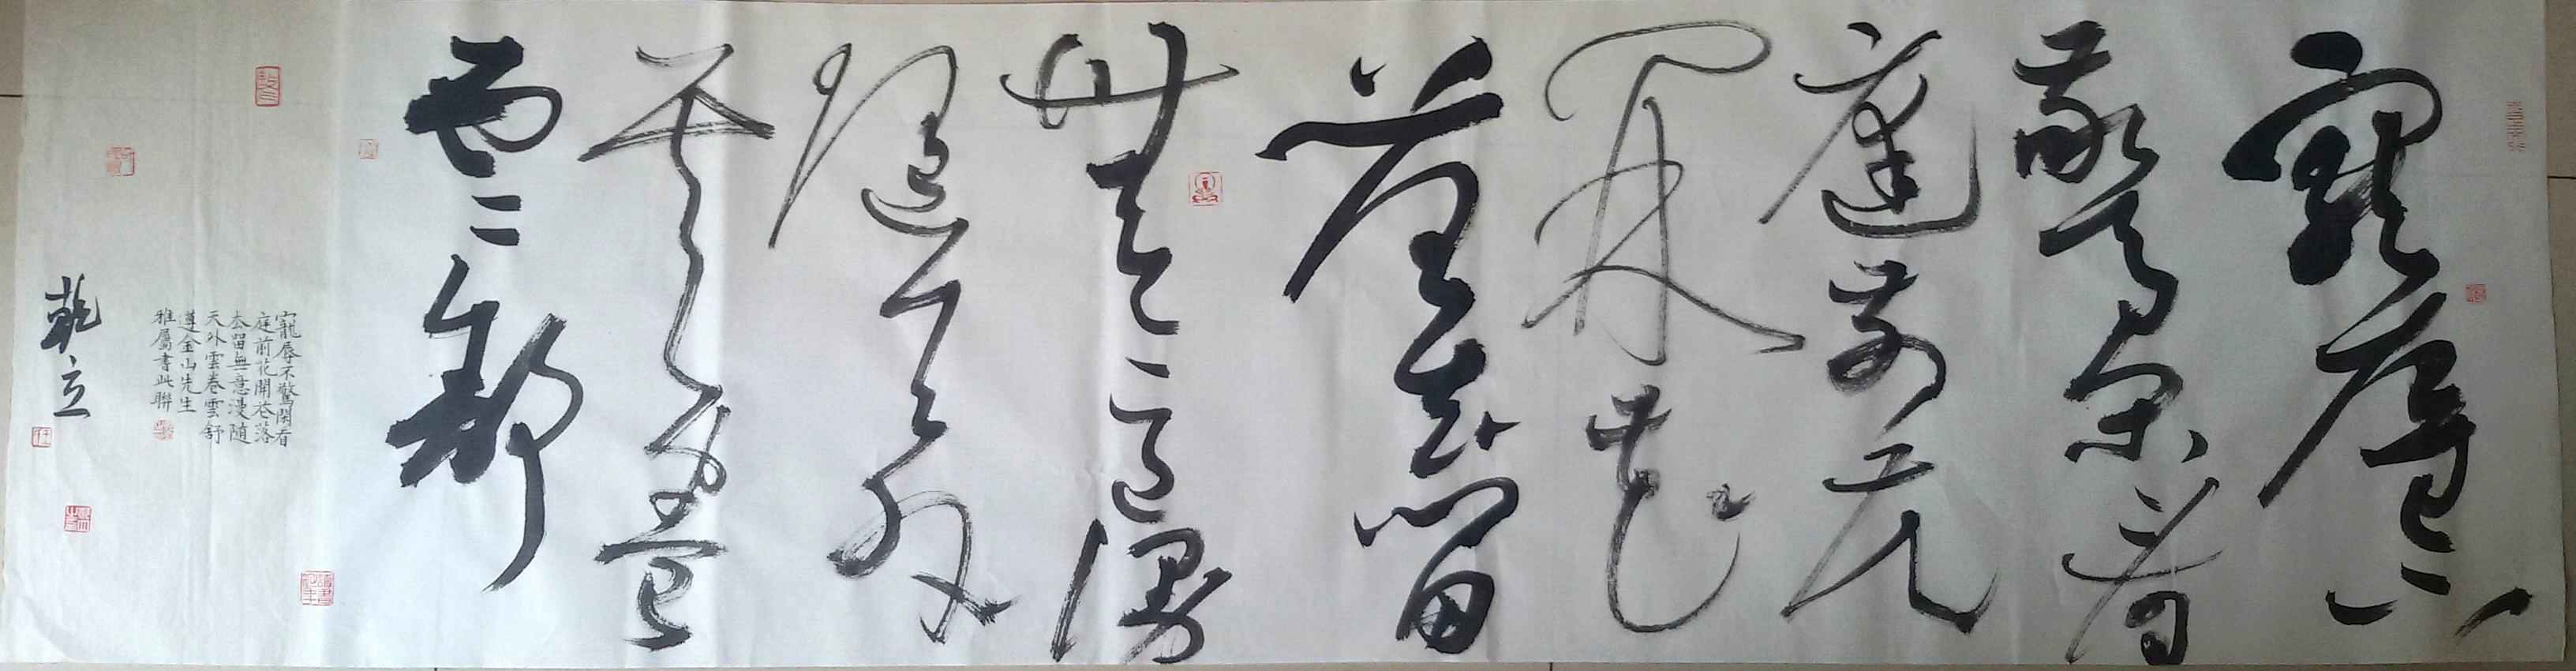 寵辱不
驚閑看
庭前花
開花
落去留
無意漫
隨天外
雲卷
雲舒
寵辱不驚閑看
庭前花開花落
去留無意漫隨
天外雲卷雲舒
遵金山先生
雅屬書此聯
乾立